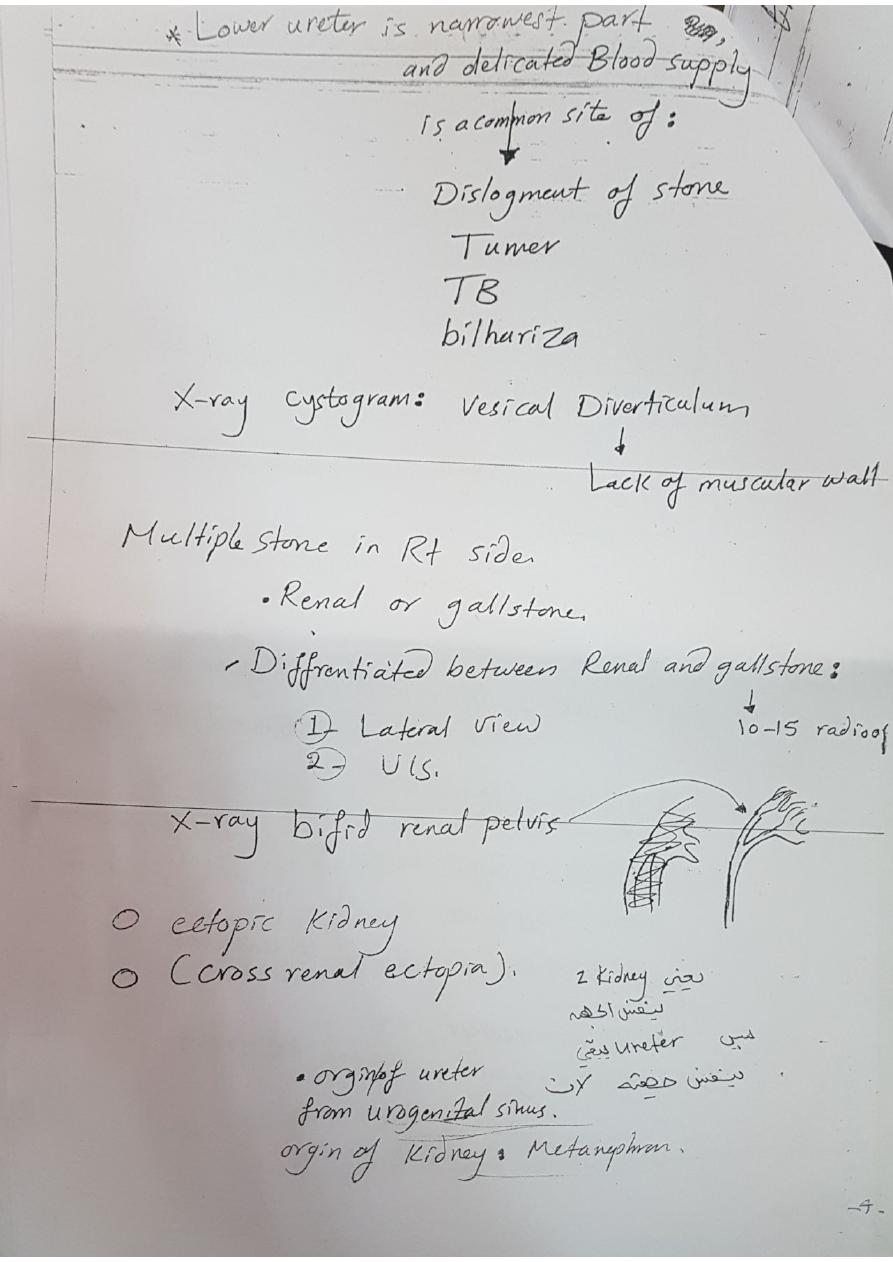 * Lower ureter is narrowest part ,
and delicated Blood supply
is a common site of :
Dislogment of stone
Tumer
TB
bilhariza
X-ray cystogram: Vesical Diverticulum
Lack of muscular wall
Multiple stone in Rt side
• Renal or gallstone
- Diffrentiated between Renal and gallstone :
1- Lateral View
10-15 radioof
2- U/S.
X-ray bifid renal pelvis
ectopic Kidney
(cross renal ectopia).
2 Kidney يعني
بنفس الجهه
بس ureter يبقى
بنفس جهته لان
• orgin of ureter
from urogenital sinus.
orgin of Kidney : Metanephron.
-4-